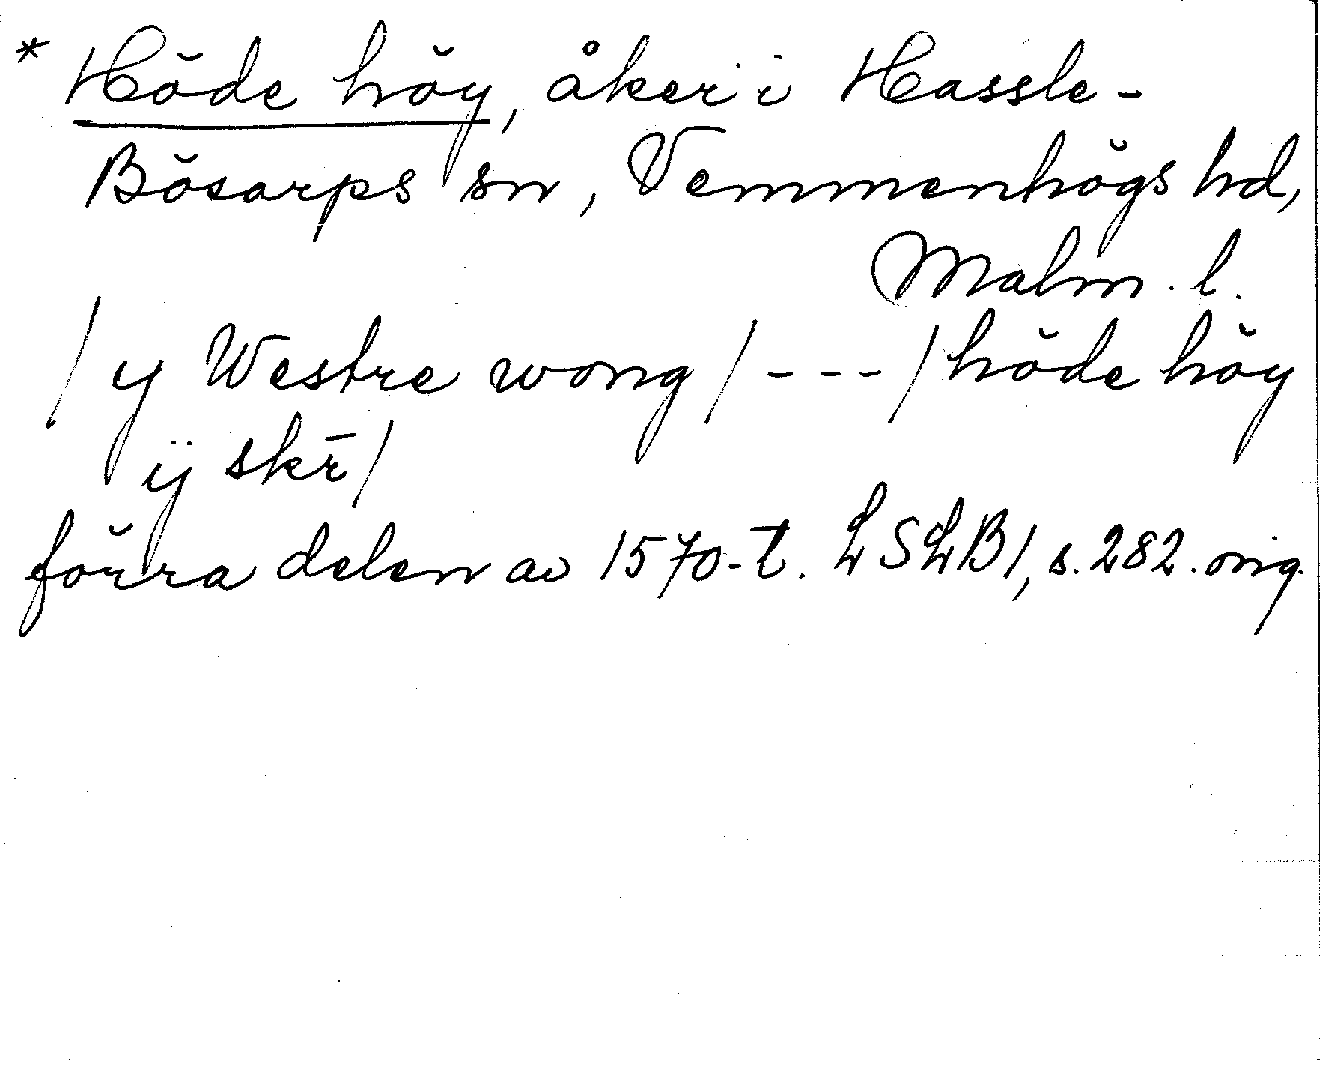 * Höde höy, åker i Hassle-
Bösarps sn, Vemmenhögs hd,
Malm. l.
/ y Westre wong / - - - / höde höy
ÿ skr̄ /
förra delen av 1570-t. LSLB 1, s. 282. orig.